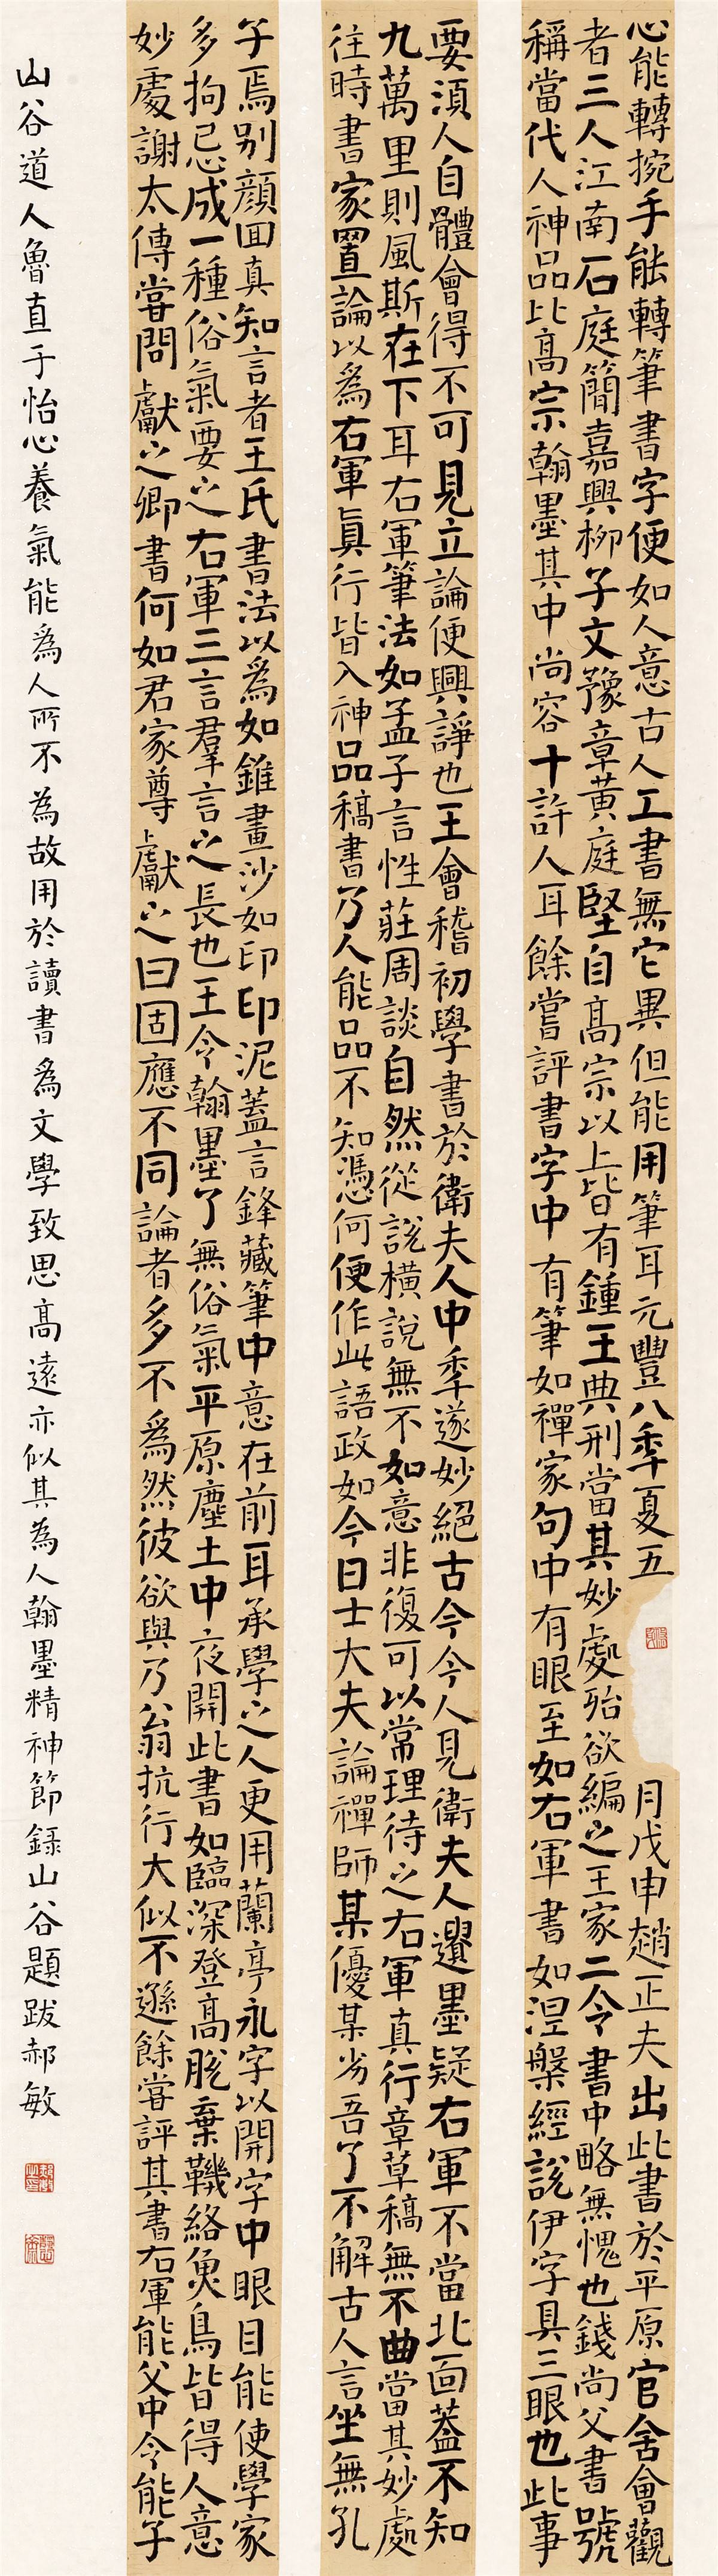 心能轉捥手能轉筆書字便如人意古人工書無它異但能用筆耳元豐八季夏五月戊申趙正夫出此書於平原官舍會觀
者三人江南石庭簡嘉興柳子文豫章黃庭堅自髙宗以上皆有鍾王典刑當其妙處殆欲編之王家二令書中略無愧也錢尚父書號
稱當代人神品比髙宗翰墨其中尚容十許人耳餘嘗評書字中有筆如禪家句中有眼至如右軍書如涅槃經說伊字具三眼也此事
要須人自體會得不可見立論便興諍也王會稽初學書於衛夫人中季遂妙絕古今今人見衛夫人遺墨疑右軍不當北面蓋不知
九萬里則風斯在下耳右軍筆法如孟子言性莊周談自然從說橫說無不如意非復可以常理待之右軍真行章草稿無不曲當其妙處
往時書家置論以爲右軍眞行皆入神品稿書乃人能品不知憑何便作此語政如今日士大夫論禪師某優某劣吾了不解古人言坐無孔
子焉別顏回真知言者王氏書法以爲如錐畫沙如印印泥蓋言鋒藏筆中意在前耳承學之人更用蘭亭永字以開字中眼目能使學家
多拘忌成一種俗氣要之右軍三言羣言之長也王令翰墨了無俗氣平原塵土中夜開此書如臨深登髙脫棄鞿絡魚鳥皆得人意
妙處謝太傅嘗問獻之卿書何如君家尊獻之曰固應不同論者多不爲然彼欲與乃翁抗行大似不遜餘嘗評其書右軍能父中令能子
山谷道人魯直于怡心養氣能爲人所不為故用於讀書爲文學致思髙遠亦似其為人翰墨精神節録山谷題跋郝敏